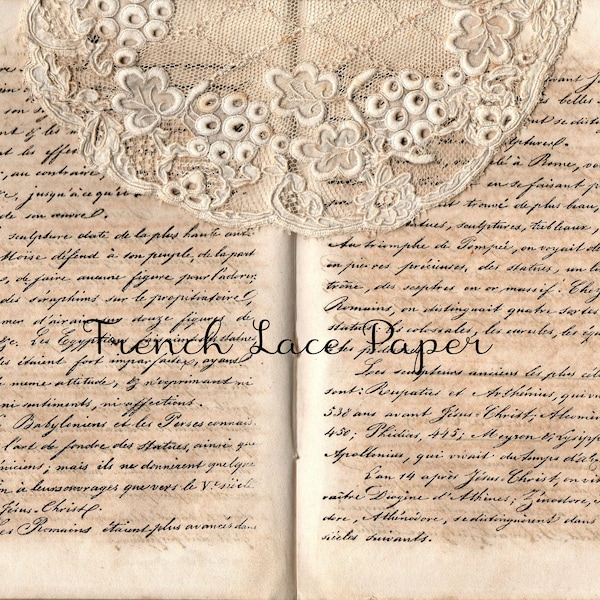 et les
et les effet
au contraire
jusqu'à ce qu'il
de son œuvre.
sculpture date de la plus haute anti-
Moïse défend à son peuple, de la part
de faire aucune figure pour l'adorer
des séraphins sur le propitiatoire,
mer d'airain douze figures de
Les Egyptiens statues
étaient fort imparfaites, ayant
même attitude, & n'exprimant ni
ni sentiments, ni affections.
Babyloniens et les Perses connais-
l'art de fondre des statues, ainsi que
niciens; mais ils ne donnèrent quelque
à leurs ouvrages que vers le V.e siècle
Jésus-Christ.
Les Romains étaient plus avancés dans
avant J
belles
se distin
sculptures.
à Rome, vo
en se faisant p
trouvé de plus beau,
statues, sculptures, tableaux,
Au triomphe de Pompée, on voyait de
en pierres précieuses, des statues, un
trône, des sceptres en or massif. Chez
Romains, on distinguait quatre sortes
statues: les colossales, les curules, les éque
Les sculpteurs anciens les plus célè
sont: Rupatius et Arthénius, qui vi
538 ans avant Jésus-Christ; Alcamèn
450; Phidias, 445; Meyron & Lysippe
Apollonius, qui vivait du temps d'
L'an 14 après Jésus-Christ, on vit
raître Diogène d'Athènes; Zénodore,
dore, Athénodore, se distinguèrent dans
siècles suivants.
French Lace Paper